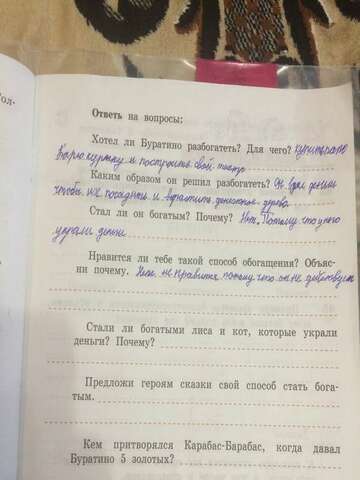 Гол-
Ответь на вопросы:
Хотел ли Буратино разбогатеть? Для чего? купить папе
Карло куртку и построить свой театр
Каким образом он решил разбогатеть? Он взял деньги
чтобы их посадить и вырастить денежное дерево
Стал ли он богатым? Почему? Нет. Потому что у него
украли деньги
Нравится ли тебе такой способ обогащения? Объяс-
ни почему. Не нравится потому что он не действует
Стали ли богатыми лиса и кот, которые украли
деньги? Почему?
Предложи героям сказки свой способ стать бога-
тым.
Кем притворялся Карабас-Барабас, когда давал
Буратино 5 золотых?